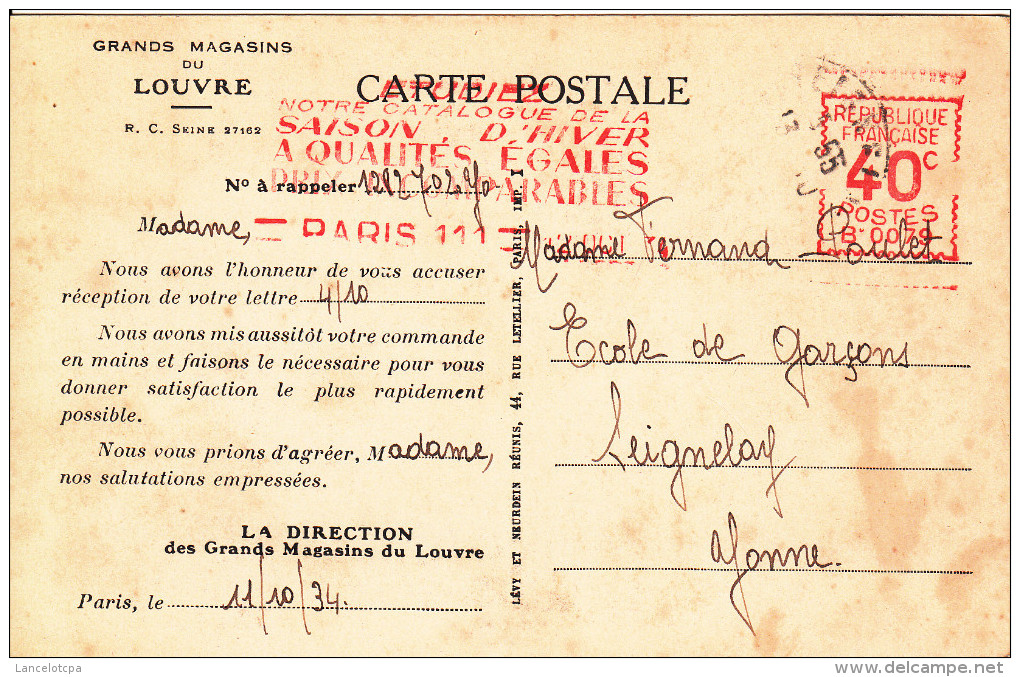 GRANDS MAGASINS
DU
LOUVRE
R. C. SEINE 27162
CARTE POSTALE
ETUDIEZ
NOTRE CATALOGUE DE LA
SAISON D'HIVER
A QUALITÉS ÉGALES
PRIX INCOMPARABLES
PARIS 111
RÉPUBLIQUE
FRANÇAISE
40c
POSTES
B. 0039
No à rappeler
Madame,
Nous avons l'honneur de vous accuser
réception de votre lettre 4/10
Nous avons mis aussitôt votre commande
en mains et faisons le nécessaire pour vous
donner satisfaction le plus rapidement
possible.
Nous vous prions d'agréer, Madame,
nos salutations empressées.
LA DIRECTION
des Grands Magasins du Louvre
Paris, le 11/10/34.
LÉVY ET NEURDEIN RÉUNIS, 44, RUE LETELLIER, PARIS, IMP. I
Madame Fernand Poulet
Ecole de Garçons
Seignelay
Yonne.
Lancelotcpa
www.delcampe.net